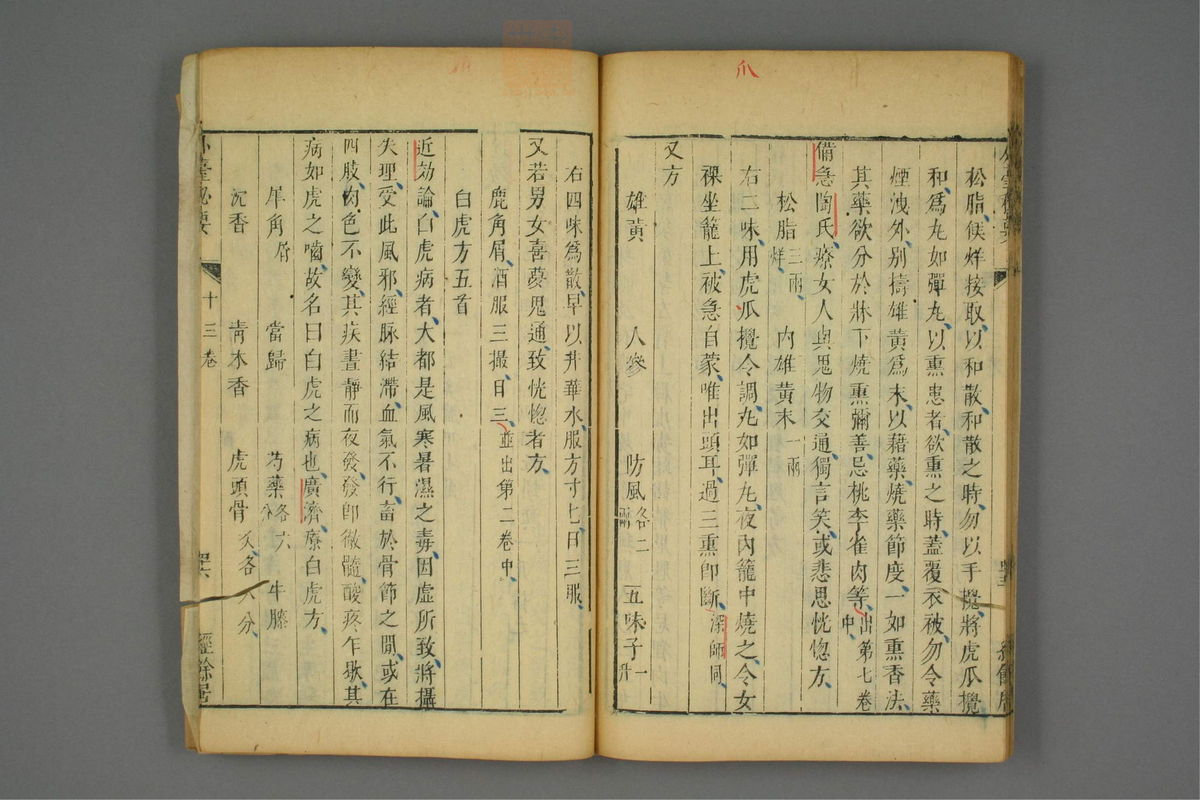 爪
松脂候烊接取以和散和散之時勿以手攪將虎爪攪
和為丸如彈丸以熏患者欲熏之時蓋覆衣被勿令藥
煙洩外別擣雄黃為末以藉藥燒藥節度一如熏香法
其藥欲分於牀下燒熏彌善忌桃李雀肉等出第七卷中
備急陶氏療女人與鬼物交通獨言笑或悲思恍惚方
松脂三兩烊 內雄黃末一兩
右二味用虎爪攪令調丸如彈丸夜內籠中燒之令女
裸坐籠上被急自蒙唯出頭耳過三熏即斷深師同
又方
雄黃 人參 防風各二兩 五味子一升
右四味為散早以井華水服方寸匕日三服
又若男女喜夢鬼通致恍惚者方
鹿角屑酒服三撮日三並出第二卷中
白虎方五首
近効論白虎病者大都是風寒暑濕之毒因虛所致將攝
失理受此風邪經脉結滯血氣不行畜於骨節之間或在
四肢肉色不變其疾晝靜而夜發發即徹髓酸疼乍歇其
病如虎之嚙故名曰白虎之病也廣濟療白虎方
犀角屑 當歸 芍藥各六分 牛膝
沉香 青木香 虎頭骨炙各八分
外臺秘要 十三卷 四六 經餘居